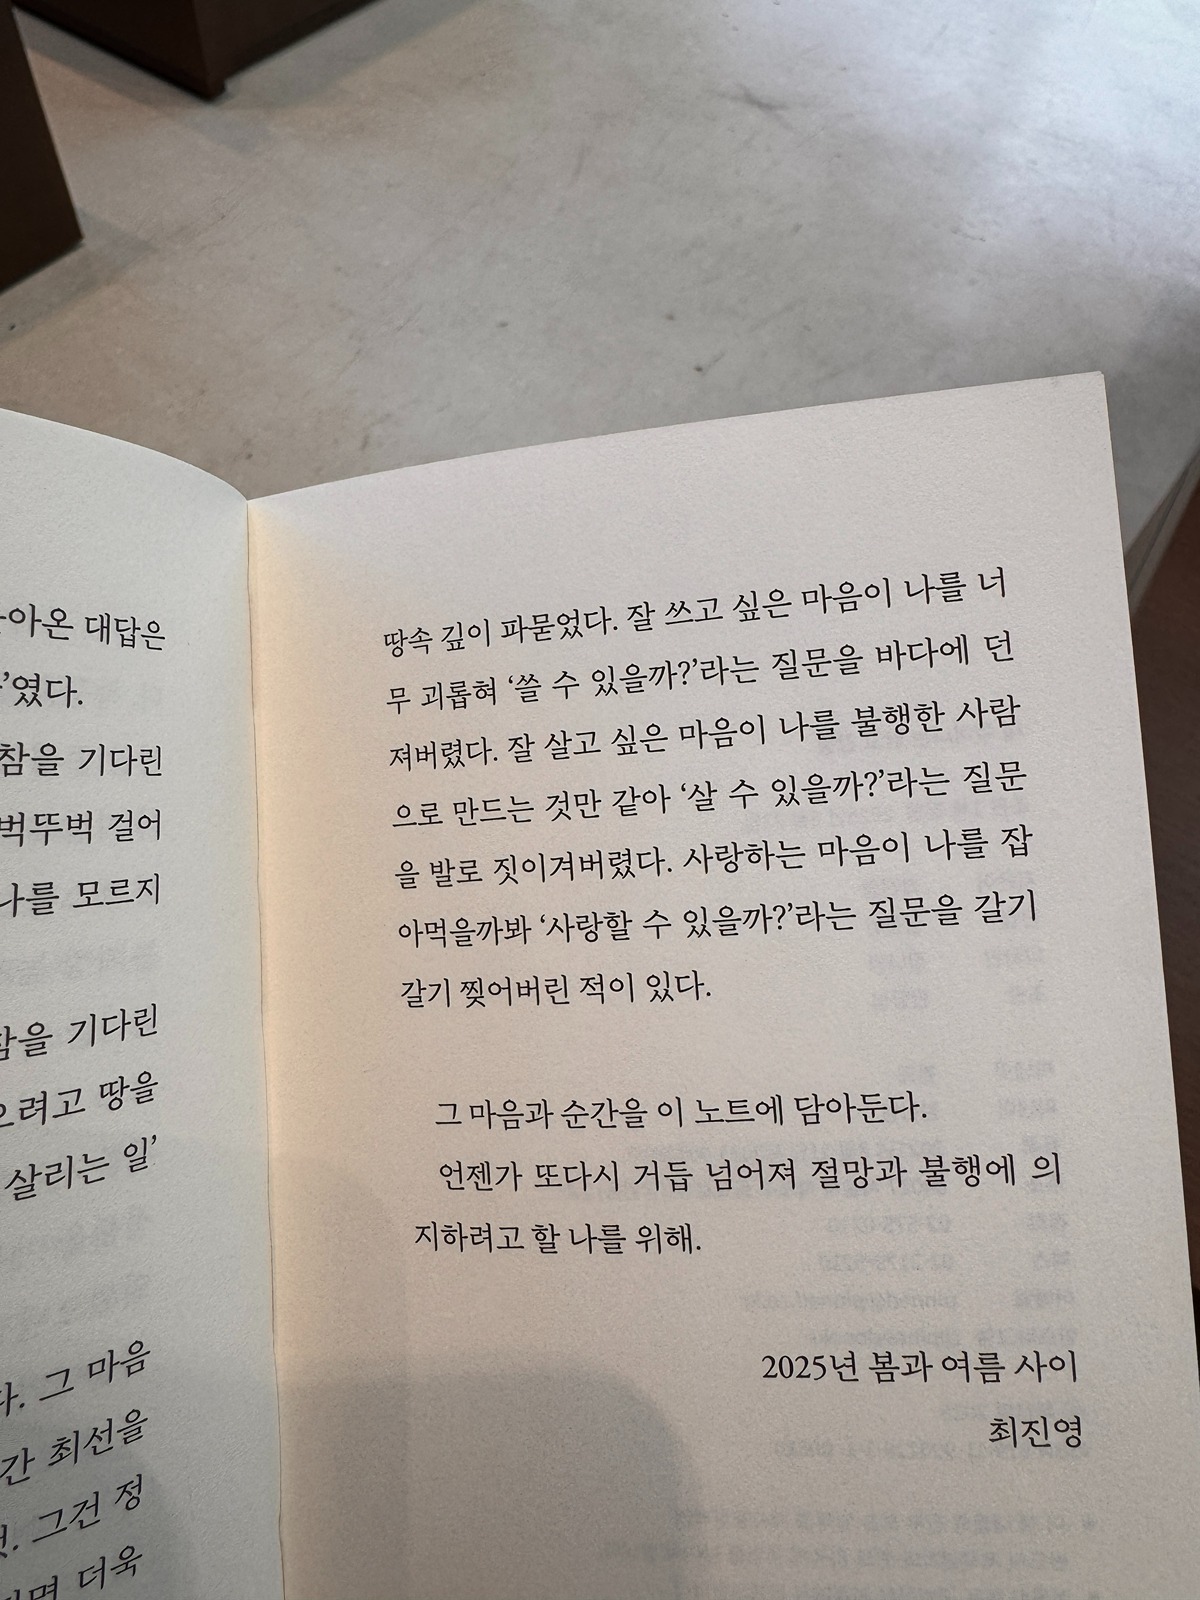 대답은
였다.
기다린
걸어
나를 모르지
기다린
려고 땅을
살리는 일’
그 마음
최선을
그건 정
더욱
땅속 깊이 파묻었다. 잘 쓰고 싶은 마음이 나를 너
무 괴롭혀 ‘쓸 수 있을까?’라는 질문을 바다에 던
져버렸다. 잘 살고 싶은 마음이 나를 불행한 사람
으로 만드는 것만 같아 ‘살 수 있을까?’라는 질문
을 발로 짓이겨버렸다. 사랑하는 마음이 나를 잡
아먹을까봐 ‘사랑할 수 있을까?’라는 질문을 갈기
갈기 찢어버린 적이 있다.
그 마음과 순간을 이 노트에 담아둔다.
언젠가 또다시 거듭 넘어져 절망과 불행에 의
지하려고 할 나를 위해.
2025년 봄과 여름 사이
최진영